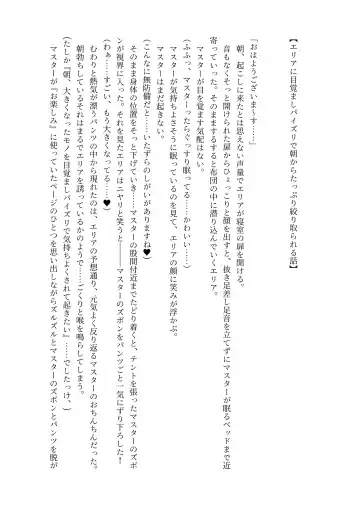 【エリアに目覚ましパイズリで朝からたっぷり絞り取られる話】
『おはようございまーす……』
朝、起こしに来たとは思えない声量でエリアが寝室の扉を開ける。
音もなくそっと開けられた扉からひょっこりと顔を出すと、抜き足差し足音を立てずにマスターが眠るベッドまで近
寄っていった。そのままするすると布団の中に潜り込んでいくエリア。
マスターが目を覚ます気配はない。
(ふふっ、マスターったらぐっすり眠ってる……かわいい……)
マスターが気持ちよさそうに眠っているのを見て、エリアの顔に笑みが浮かぶ。
マスターはまだ起きない。
(こんなに無防備だと……いたずらのしがいがありますね♥)
そのまま身体の位置をそっと下げていき……マスターの股間付近までたどり着くと、テントを張ったマスターのズボ
ンが視界に入った。それを見たエリアはニヤリと笑うと――マスターのズボンをパンツごと一気にずり下ろした！
(わぁ……すごい、もう大きくなってる……♥)
むわりと熱気が漂うパンツの中から現れたのは、エリアの予想通り、元気よく反り返るマスターのおちんちんだった。
朝勃ちしているそれはまるでエリアを誘っているかのようで……ごくりと喉を鳴らしてしまう。
(たしか『朝、大きくなったモノを目覚ましパイズリで気持ちよくされて起きたい』……でしたっけ、)
マスターが『お楽しみ』に使っていたページのひとつを思い出しながらズルズルとマスターのズボンとパンツを脱が